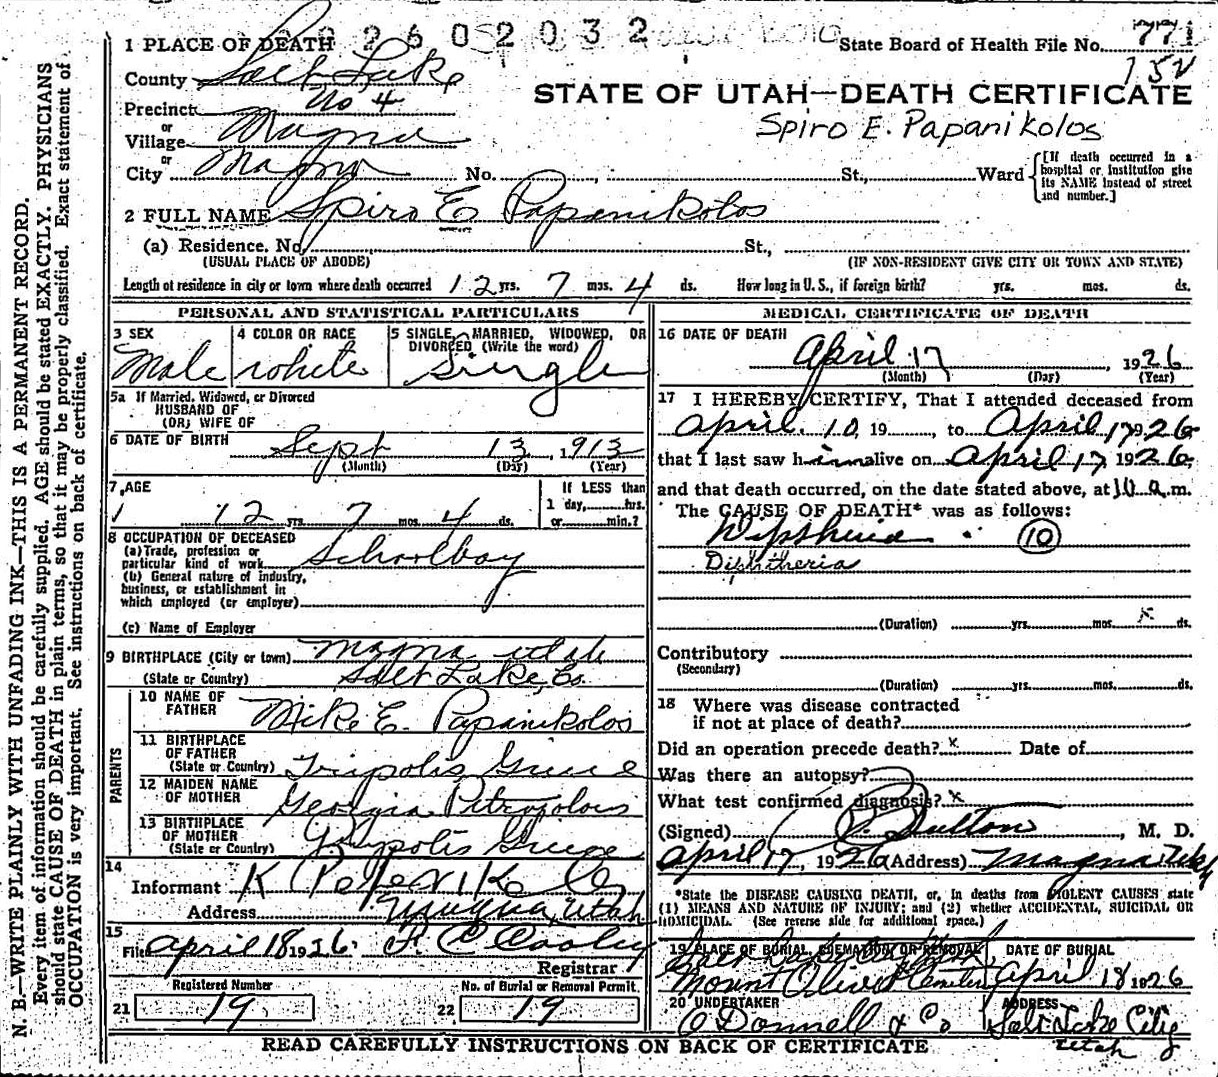 2602032
1 PLACE OF DEATH
State Board of Health File No. 771
152
County Salt Lake
STATE OF UTAH—DEATH CERTIFICATE
Precinct No 4
Spiro E. Papanikolos
or
Village Magna
or
City Magna No. , St., Ward
[If death occurred in a
hospital or institution give
its NAME instead of street
and number.]
2 FULL NAME Spiro E Papanikolos
(a) Residence. No. St.,
(USUAL PLACE OF ABODE) (IF NON-RESIDENT GIVE CITY OR TOWN AND STATE)
Length of residence in city or town where death occurred 12 yrs. 7 mos. 4 ds. How long in U. S., if foreign birth? yrs. mos. ds.
PERSONAL AND STATISTICAL PARTICULARS
3 SEX
Male
4 COLOR OR RACE
white
5 SINGLE, MARRIED, WIDOWED, OR
DIVORCED (Write the word)
Single
5a If Married, Widowed, or Divorced
HUSBAND OF
(OR) WIFE OF
6 DATE OF BIRTH Sept 13, 1913
(Month) (Day) (Year)
7 AGE
12 yrs. 7 mos. 4 ds.
If LESS than
1 day, hrs.
or min.?
8 OCCUPATION OF DECEASED
(a) Trade, profession or
particular kind of work Schoolboy
(b) General nature of industry,
business, or establishment in
which employed (or employer)
(c) Name of Employer
9 BIRTHPLACE (City or town) Magna Utah
(State or Country) Salt Lake, Co.
PARENTS
10 NAME OF
FATHER Mike E. Papanikolos
11 BIRTHPLACE
OF FATHER
(State or Country) Tripolis Greece
12 MAIDEN NAME
OF MOTHER Georgia
13 BIRTHPLACE
OF MOTHER
(State or Country) Tripolis Greece
14
Informant K
Address Magna, Utah
15
Filed April 18 1926. F. C. Cooley
Registrar
Registered Number
21 19
No. of Burial or Removal Permit.
22 19
MEDICAL CERTIFICATE OF DEATH
16 DATE OF DEATH
April 17, 1926
(Month) (Day) (Year)
17 I HEREBY CERTIFY, That I attended deceased from
April. 10, 19, to April 17 1926
that I last saw him alive on April 17, 1926,
and that death occurred, on the date stated above, at 10 a.m.
The CAUSE OF DEATH* was as follows:
Diptheria 10
Diphtheria
(Duration) yrs. mos. x ds.
Contributory
(Secondary)
(Duration) yrs. mos. ds.
18 Where was disease contracted
if not at place of death?
Did an operation precede death? x Date of
Was there an autopsy?
What test confirmed diagnosis? x
(Signed) , M. D.
April 17, 1926 (Address) Magna Utah
*State the DISEASE CAUSING DEATH, or, in deaths from VIOLENT CAUSES state
(1) MEANS AND NATURE OF INJURY; and (2) whether ACCIDENTAL, SUICIDAL OR
HOMICIDAL. (See reverse side for additional space.)
19 PLACE OF BURIAL, CREMATION OR REMOVAL
Mount Olivet Cemetery
DATE OF BURIAL
April 18 1926
20 UNDERTAKER
O'Donnell & Co
ADDRESS
Salt Lake City
Utah
READ CAREFULLY INSTRUCTIONS ON BACK OF CERTIFICATE
N. B.—WRITE PLAINLY WITH UNFADING INK—THIS IS A PERMANENT RECORD.
Every item of information should be carefully supplied. AGE should be stated EXACTLY. PHYSICIANS
should state CAUSE OF DEATH in plain terms, so that it may be properly classified. Exact statement of
OCCUPATION is very important. See instructions on back of certificate.